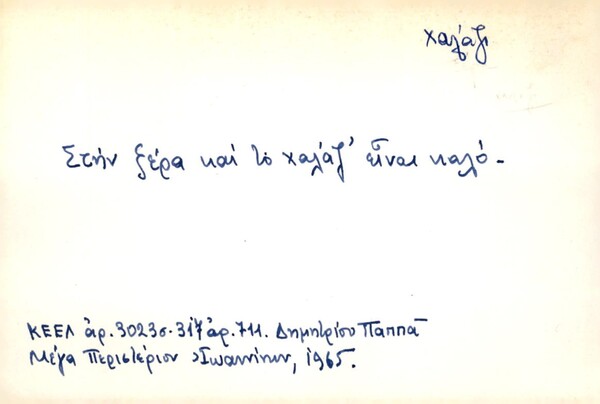 χαλάζι
Στήν ξέρα καί τό χαλάζ' εἶναι καλό-
ΚΕΕΛ ἀρ. 3023σ. 317 ἀρ. 711. Δημητρίου Παππᾶ
Μέγα Περιστέριον Ἰωαννίνων, 1965.